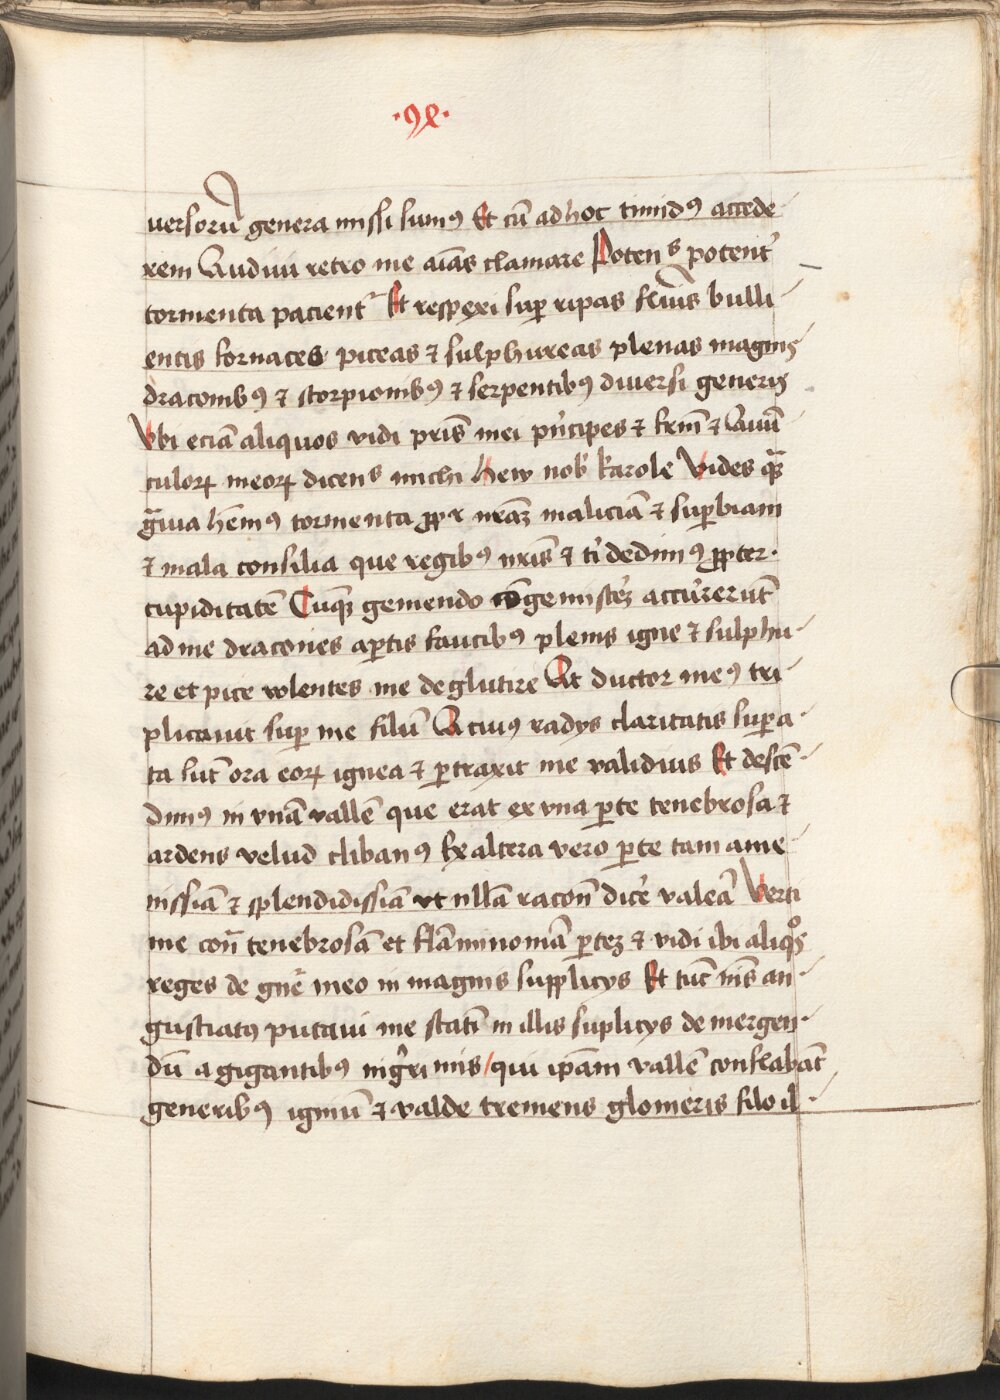 ·9e·
uersorū genera missi sumꝰ Et cū ad hoc timidꝰ accede
rem Audiui retro me aīas clamare Potens potent᷑
tormenta pacient᷑ Et respexi suꝑ ripas fluuīs bulli
entis fornaces piceas ⁊ sulphureas plenas magnis
draconibꝰ ⁊ scorpionibꝰ ⁊ serpentibꝰ diuersi generis
Vbi eciā aliquos vidi pr̄is mei p̓ncipes ⁊ fr̄m̄ ⁊ Auū
culoꝝ meoꝝ dicens michi hew nob̓ karole Vides qꝫ̄
g̓uia hēmꝰ tormenta ꝓpt̓ nr̄aꝫ maliciā ⁊ suꝑbiam
⁊ mala consilia que regibꝰ nr̄is ⁊ t̓ dedimꝰ ꝓpter·
cupiditatē Cūqꝫ gemendo ꝯgemisceꝫ accurrerūt
ad me dracones aꝑtis faucibꝰ plenis igne ⁊ sulphu-
re et pice volentes me deglutire At ductor meꝰ tri
plicauit suꝑ me filū A cuiꝰ radys claritatis suꝑa
ta sūt ora eoꝝ ignea ⁊ ꝑtraxit me validius Et descē-
dimꝰ in vnā vallē que erat ex vna ꝑte tenebrosa ⁊
ardens velud clibanꝰ Ex altera vero ꝑte tam ame
nissiā ⁊ splendidissiā vt nllā racon̄ dic̓e valeā Verti
me con̄ tenebrosā et flāmiuomā ꝑteꝫ ⁊ vidi ibi aliqͦs
reges de gn̄e meo in magnis supplicys Et tūc nīs an-
gustiatꝰ putaui me statī in illis suplicys demergen-
dū a gigantibꝰ nig̓rimis/qui ip̄am vallē conflabāt
generibꝰ igniū ⁊ valde tremens glomeris filo il-